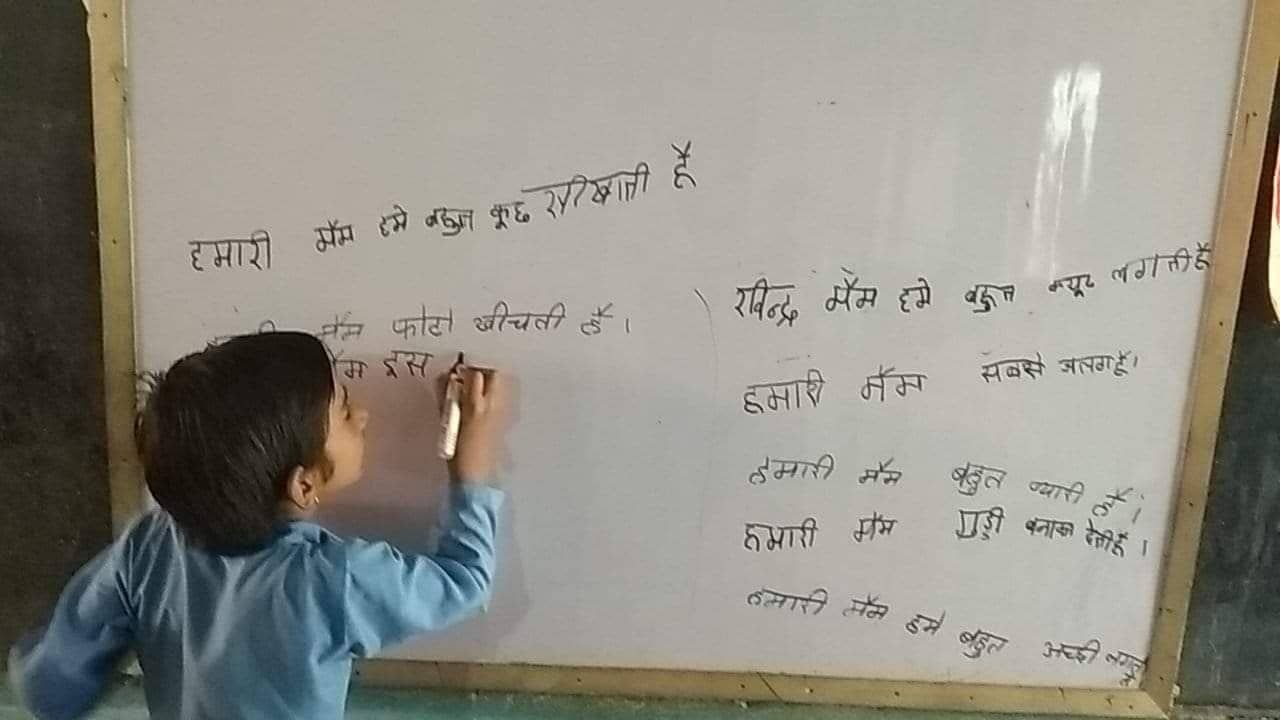 हमारी मैम हमे बहुत कूछ सीखाती हैं
मैम फोटो खीचती हैं।
मैम इस
रविन्द्र मैम हमे बहुत क्यूट लगती हैं
हमारी मैम सबसे अलग हैं।
हमारी मैम बहुत प्यारी हैं।
हमारी मैम गुड्डी बनाका देती हैं।
हमारी मैम हमे बहुत अच्छी